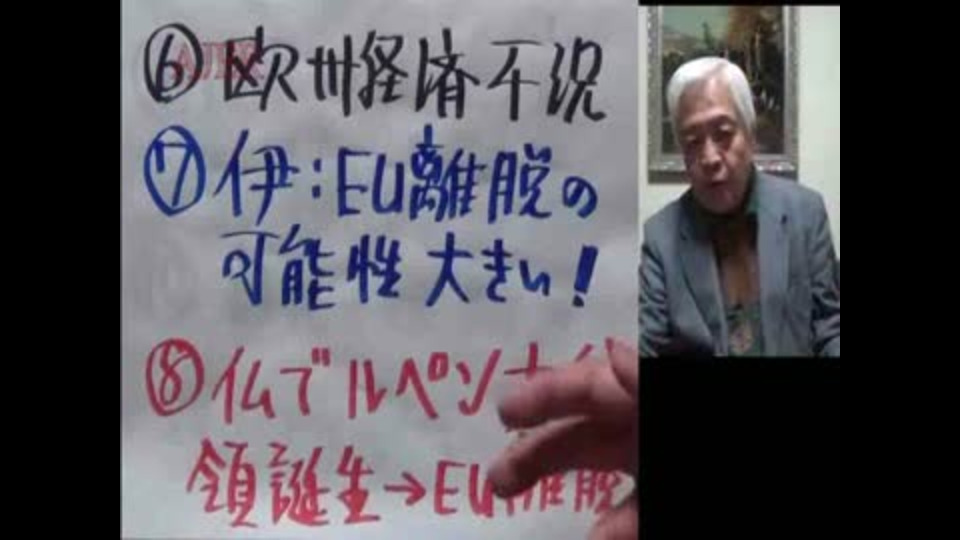 ⑥欧州経済不況
⑦伊:EU離脱の
可能性大きい!
⑧仏でルペン大
領誕生→EU離脱